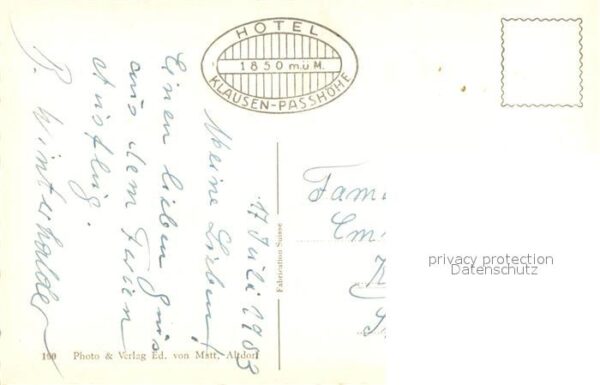 HOTEL
1850 m.ü M.
KLAUSEN-PASSHÖHE
17 Juli 1953
Meine Lieben!
Einen lieben Grus
aus dem Ferien
Ausflug.
B. Winterhalder
Fam
Fabrication Suisse
privacy protection
Datenschutz
190 Photo & Verlag Ed. von Matt, Altdorf